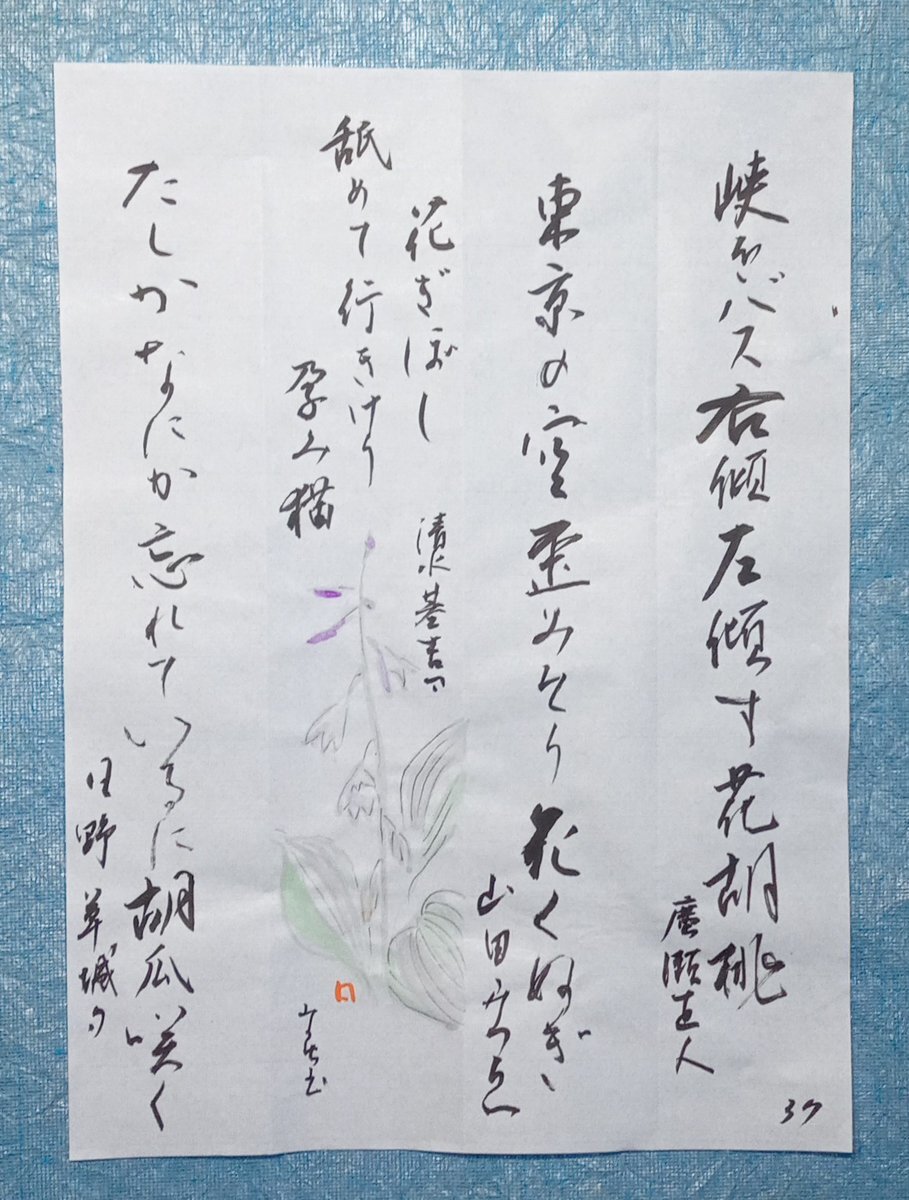 峡のバス右傾左傾す花胡桃
廣瀬直人
東京の空歪みをり花くぬぎ
山田みづえ
花ぎぼし
舐めて行きけり
孕み猫
清水基吉
たしかなにか忘れているに胡瓜咲く
日野草城句
37